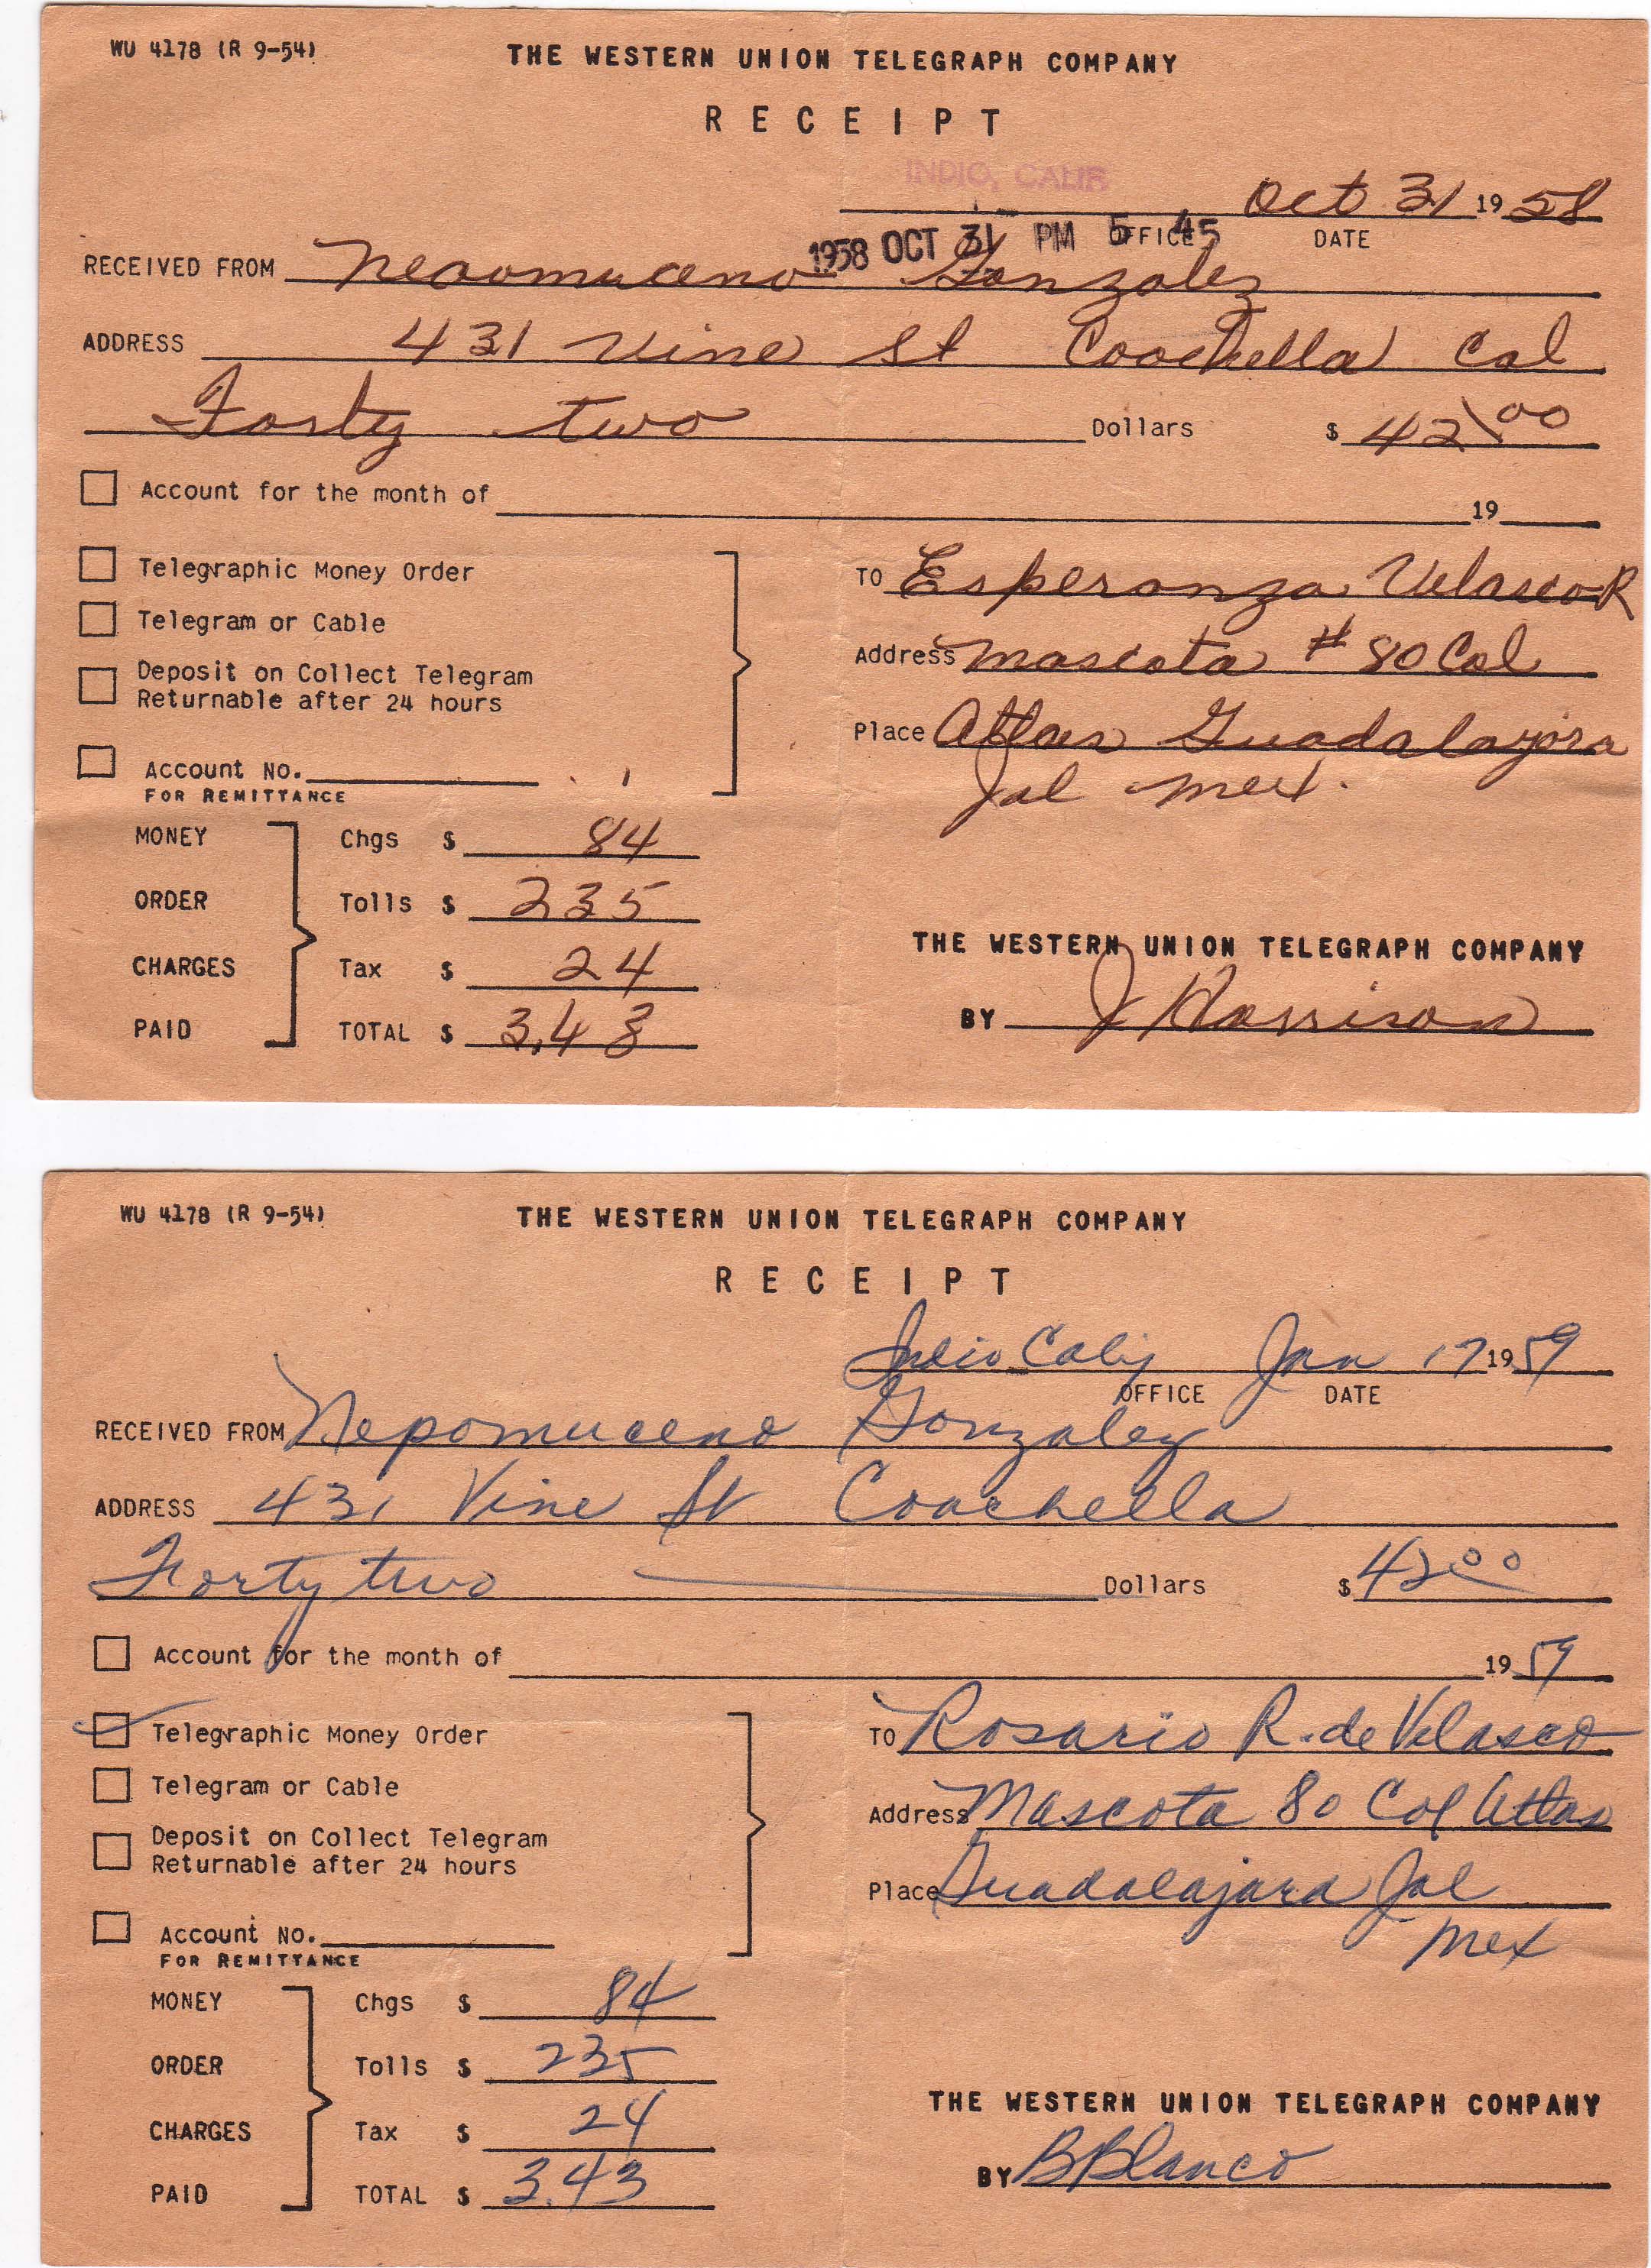 WU 4178 (R 9-54)
THE WESTERN UNION TELEGRAPH COMPANY
RECEIPT
INDIO, CALIF
Oct 31 1958
1958 OCT 31 PM 5 45
OFFICE DATE
RECEIVED FROM Nepomuceno Gonzalez
ADDRESS 431 Vine St Coachella Cal
Forty two Dollars $ 42 00
Account for the month of 19
Telegraphic Money Order
Telegram or Cable
Deposit on Collect Telegram
Returnable after 24 hours
Account No.
FOR REMITTANCE
TO Esperanza Velasco R
Address Mascota # 80 Col
Place Atlas Guadalajara
Jal Mex.
MONEY ORDER CHARGES PAID
Chgs $ 84
Tolls $ 235
Tax $ 24
TOTAL $ 3.43
THE WESTERN UNION TELEGRAPH COMPANY
BY J Harrison
WU 4178 (R 9-54)
THE WESTERN UNION TELEGRAPH COMPANY
RECEIPT
Indio Calif Jan 17 1959
OFFICE DATE
RECEIVED FROM Nepomuceno Gonzalez
ADDRESS 431 Vine St Coachella
Forty two Dollars $ 42 00
Account for the month of 19 59
Telegraphic Money Order
Telegram or Cable
Deposit on Collect Telegram
Returnable after 24 hours
Account No.
FOR REMITTANCE
TO Rosario R. de Velasco
Address Mascota 80 Col Atlas
Place Guadalajara Jal
Mex
MONEY ORDER CHARGES PAID
Chgs $ 84
Tolls $ 235
Tax $ 24
TOTAL $ 3.43
THE WESTERN UNION TELEGRAPH COMPANY
BY B Blanco